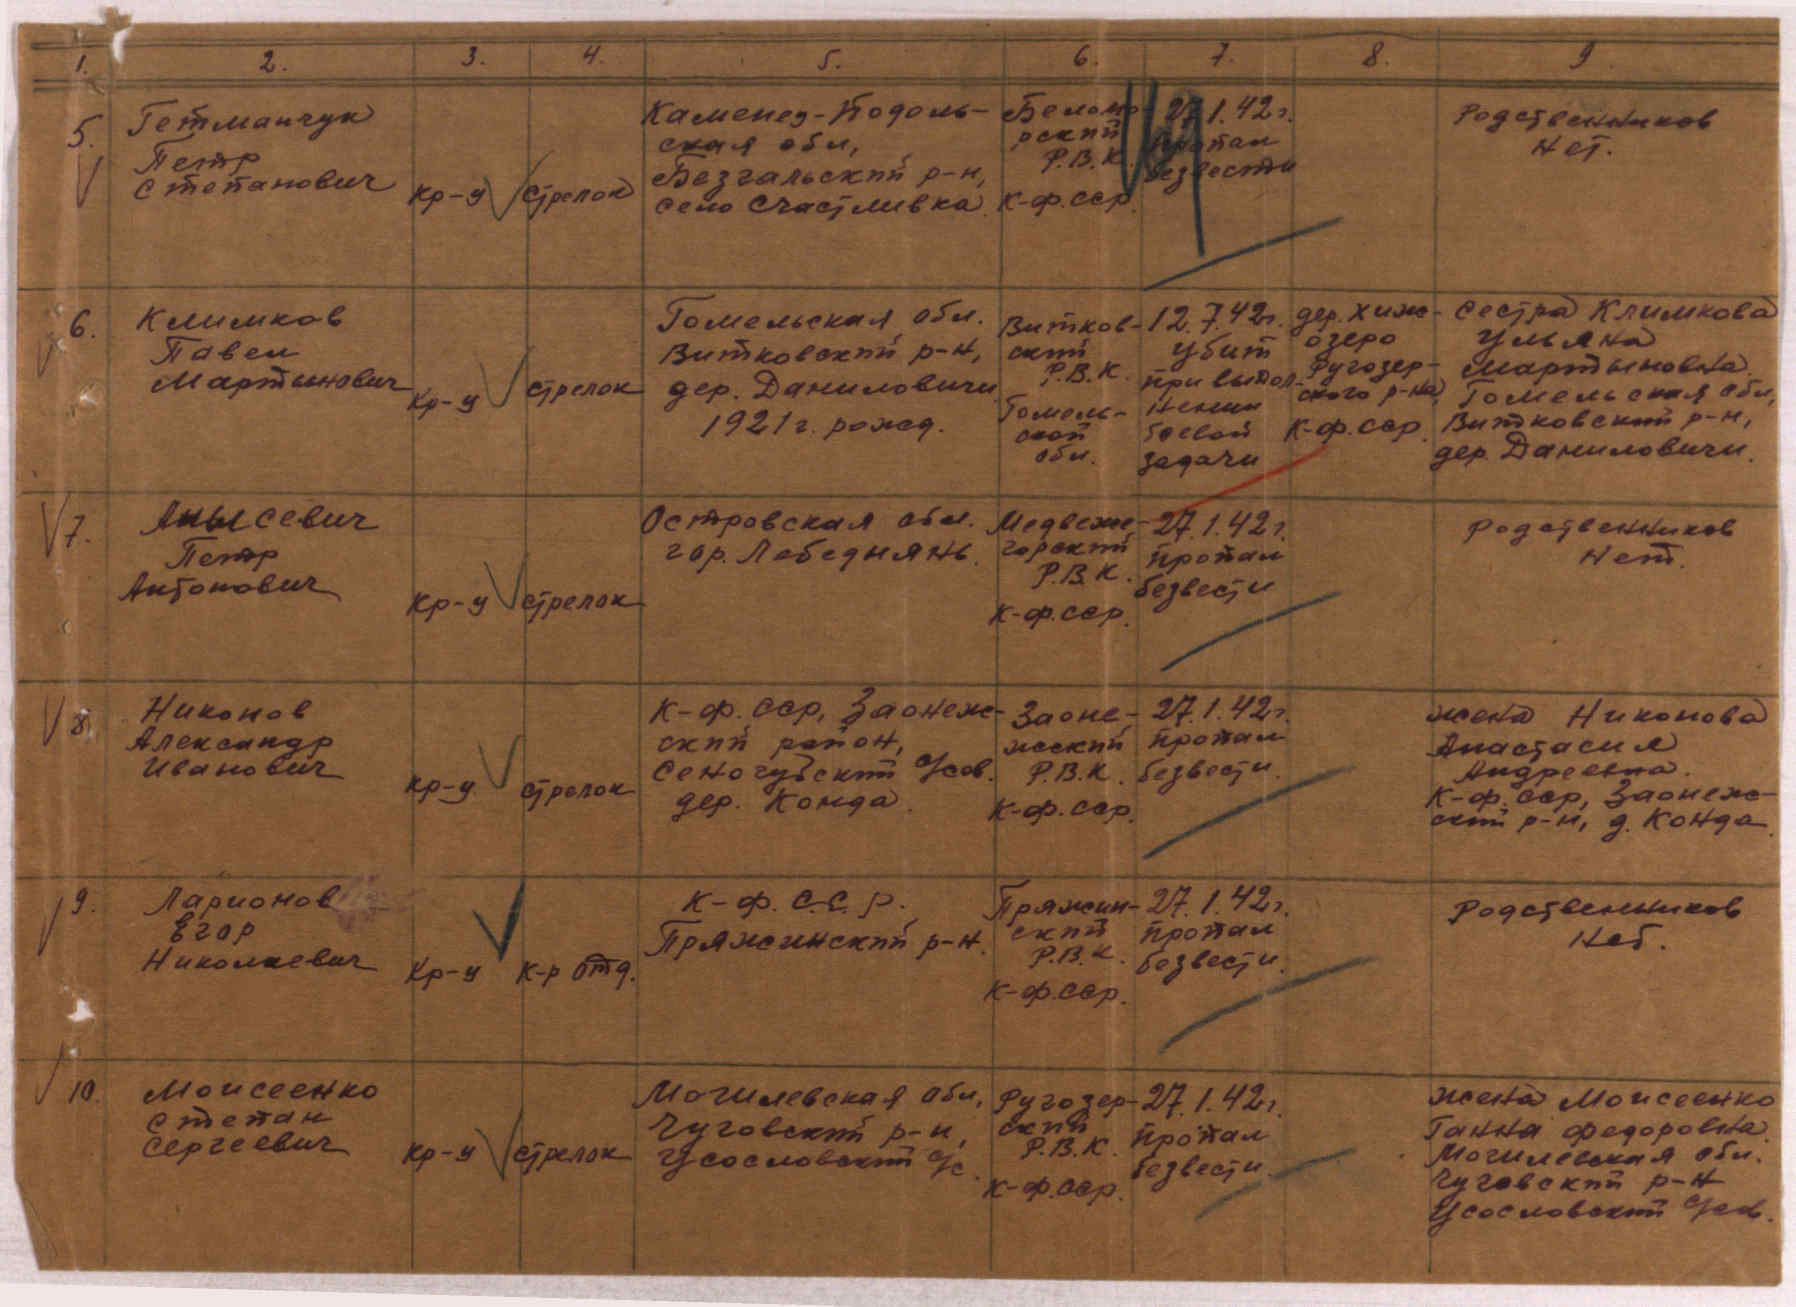 1. 2. 3. 4. 5. 6. 7. 8. 9
5. Гетманчук
Петр
Степанович
кр-ц
стрелок
Каменец-Подоль-
ская обл,
село Счастливка
Беломо-
рский
Р.В.К.
К-ф.сср.
27.1.42г.
пропал
безвести
Родственников
нет.
6. Климков
Павел
Мартынович
кр-ц
стрелок
Гомельская обл.
Витковский р-н,
дер. Даниловичи
1921г. рожд.
Витков-
ский
Р.В.К.
Гомель-
ской
обл.
12.7.42г.
убит
при выпол-
нении
боевой
задачи
дер. Хиж-
озеро
Ругозер-
ского р-на,
К-ф.сср.
сестра Климкова
Ульяна
Мартыновна
Гомельская обл,
Витковский р-н,
дер. Даниловичи.
7. Анысевич
Петр
Антонович
кр-ц
стрелок
Островская обл.
гор. Лебеднянь.
Медвеже-
горский
Р.В.К.
К-ф.сср.
27.1.42г.
пропал
безвести
родственников
нет.
8. Никонов
Александр
Иванович
кр-ц
стрелок
К-ф.сср, Заонеж-
ский район,
Сеногубский с/сов.
дер. Конда.
Заоне-
жский
Р.В.К.
К-ф.сср.
27.1.42г.
пропал
безвести.
жена Никонова
Анастасия
Андреевна.
К-ф.сср, Заонеж-
ский р-н, д. Конда.
9. Ларионов
Егор
Николаевич
кр-ц
к-р отд.
К-ф.С.С.Р.
Пряжинский р-н.
Пряжин-
ский
Р.В.К.
К-ф.сср.
27.1.42г.
пропал
безвести.
Родственников
нет.
10. Моисеенко
Степан
Сергеевич
кр-ц
стрелок
Могилевская обл,
Чуговский р-н,
Усословский с/с.
Ругозер-
ский
Р.В.К.
К-ф.сср.
27.1.42г.
пропал
безвести.
жена Моисеенко
Ганна Федоровна.
Могилевская обл.
Чуговский р-н
Усословский с/сов.